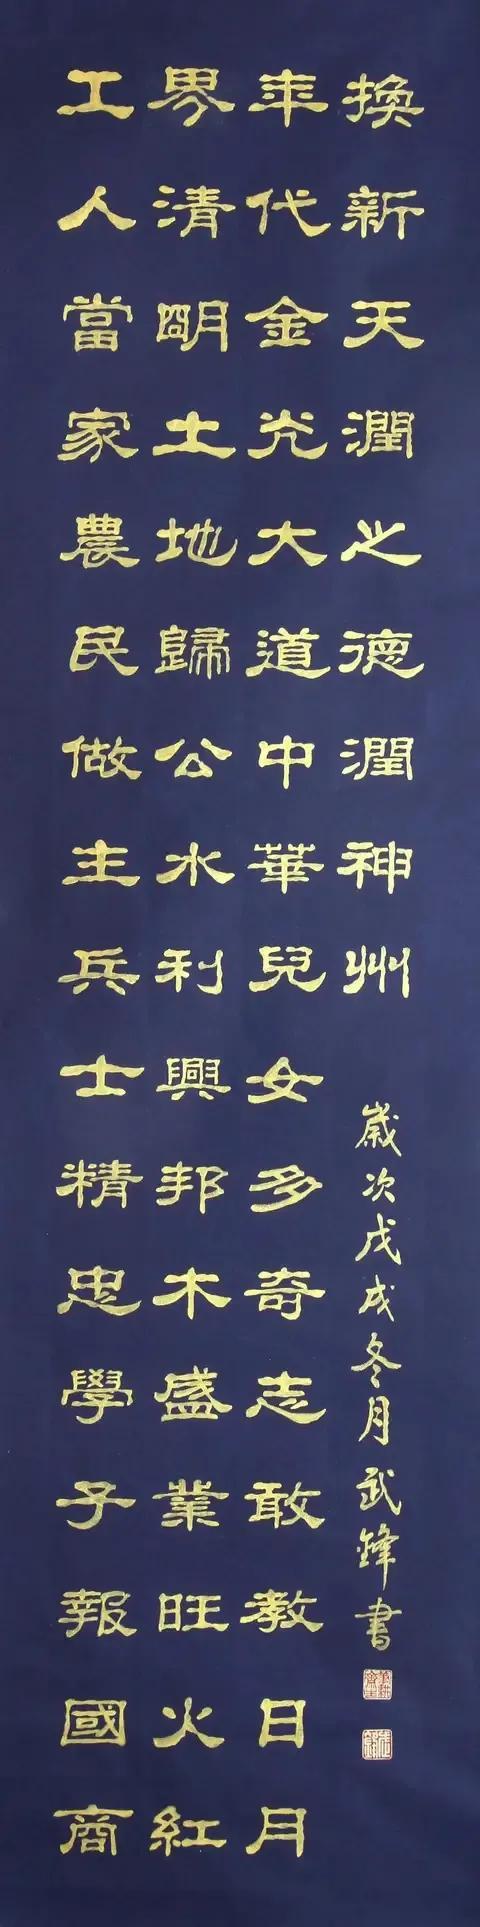 工人當家農民做主兵士精忠學子報國商
界清明土地歸公水利興邦木盛業旺火紅
年代金光大道中華兒女多奇志敢教日月
換新天潤之德潤神州
歲次戊戌冬月武鋒書